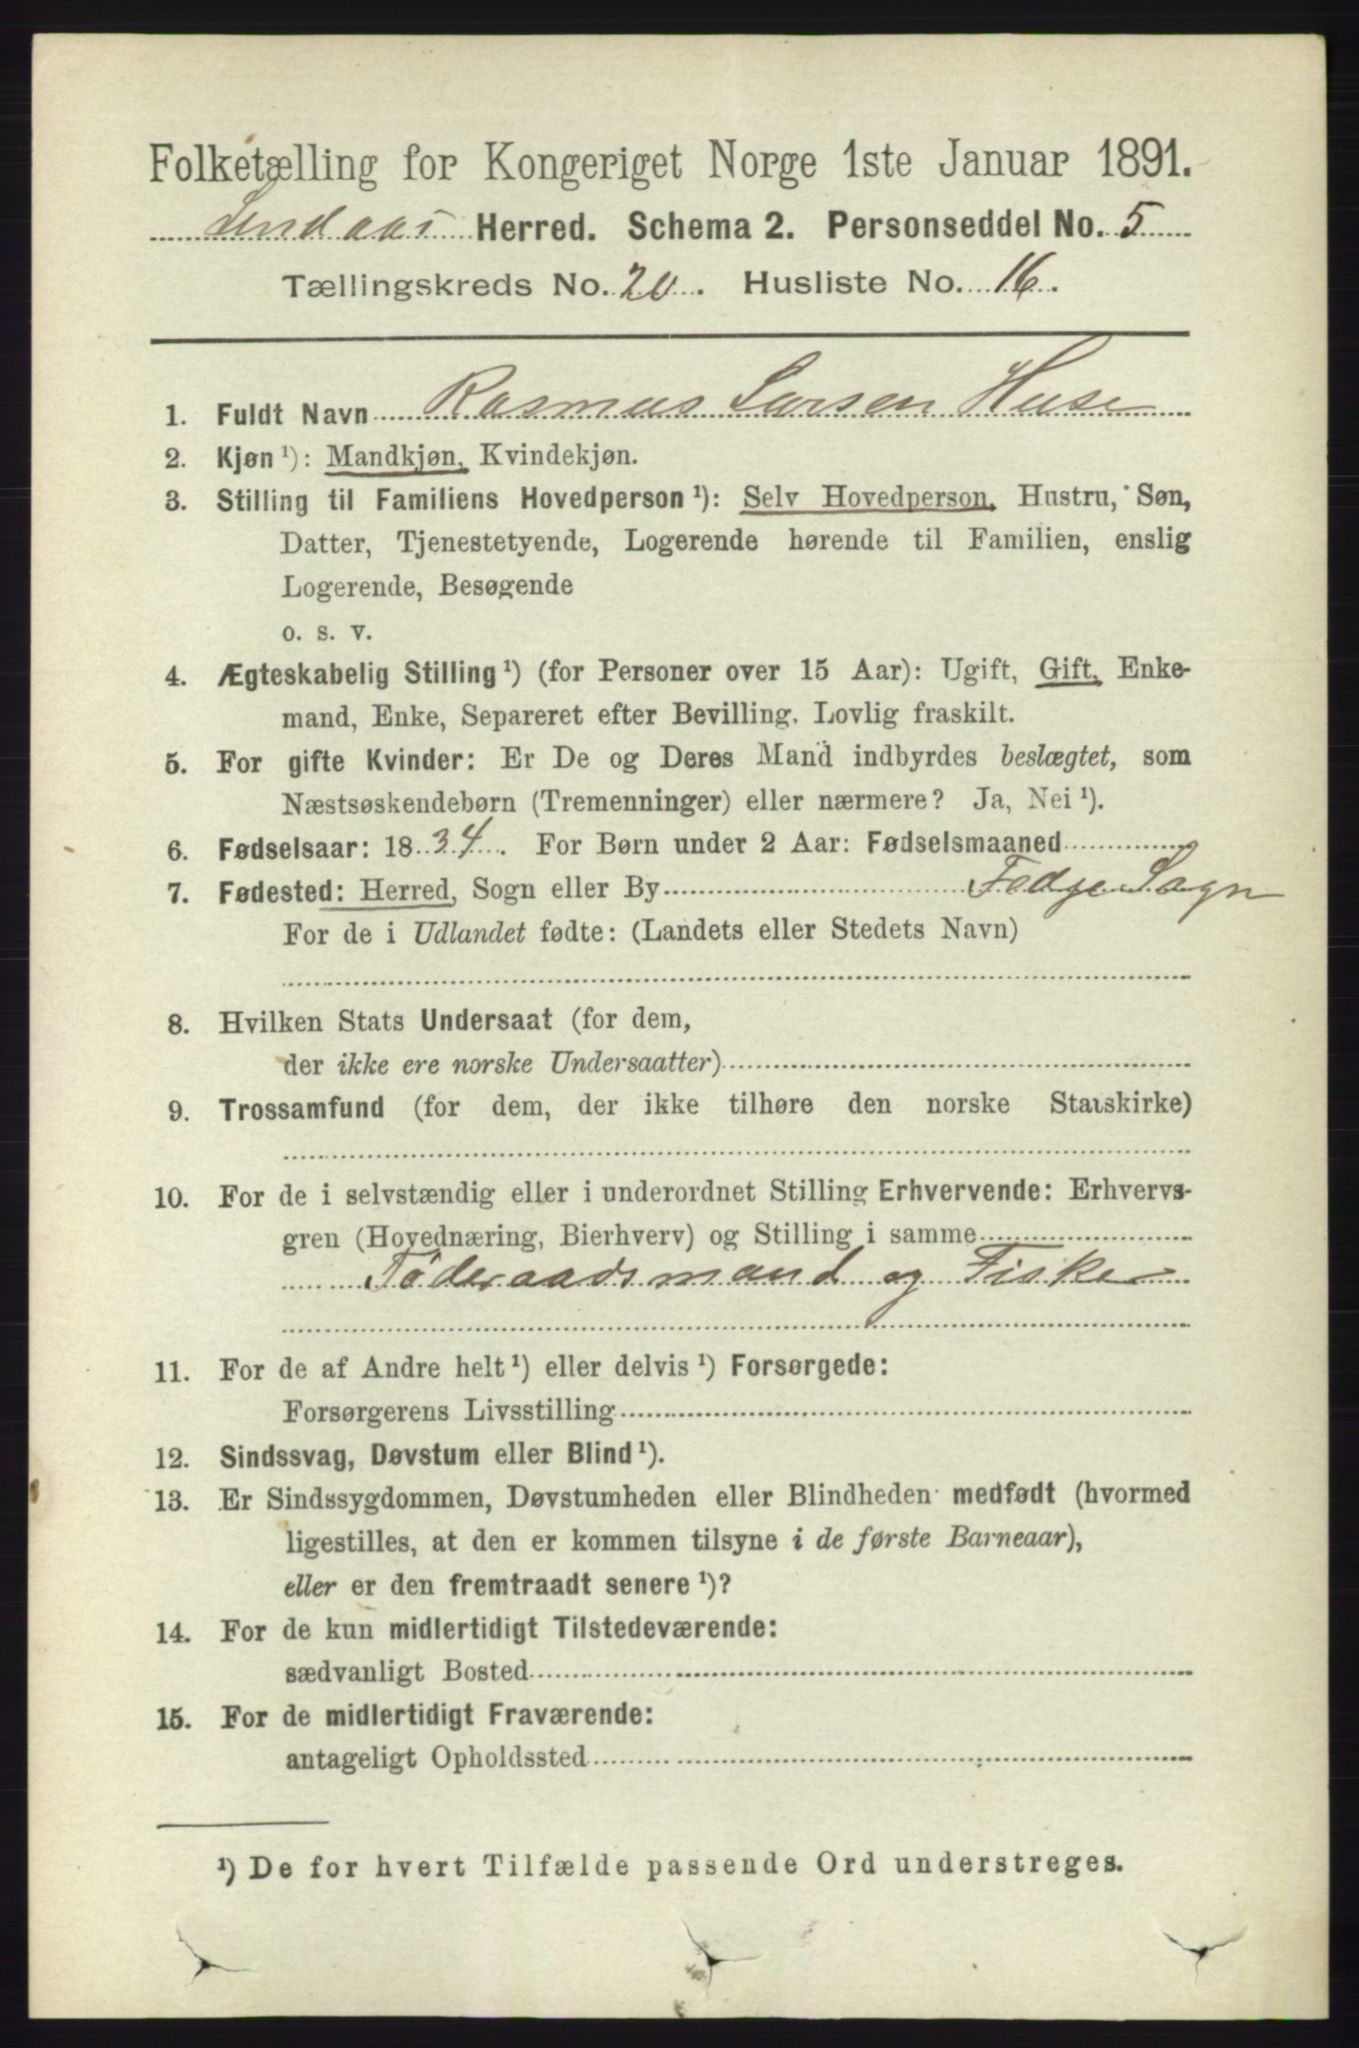 Folketælling for Kongeriget Norge 1ste Januar 1891.
Lindaas Herred. Schema 2. Personseddel No. 5
Tællingskreds No. 20. Husliste No. 16.
1. Fuldt Navn Rasmus Larsen Huse
2. Kjøn ¹): Mandkjøn, Kvindekjøn.
3. Stilling til Familiens Hovedperson ¹): Selv Hovedperson, Hustru, Søn,
Datter, Tjenestetyende, Logerende hørende til Familien, enslig
Logerende, Besøgende
o. s. v.
4. Ægteskabelig Stilling ¹) (for Personer over 15 Aar): Ugift, Gift, Enke-
mand, Enke, Separeret efter Bevilling. Lovlig fraskilt.
5. For gifte Kvinder: Er De og Deres Mand indbyrdes beslægtet, som
Næstsøskendebørn (Tremenninger) eller nærmere? Ja, Nei ¹).
6. Fødselsaar: 1834. For Børn under 2 Aar: Fødselsmaaned
7. Fødested: Herred, Sogn eller By Fedje Sogn
For de i Udlandet fødte: (Landets eller Stedets Navn)
8. Hvilken Stats Undersaat (for dem,
der ikke ere norske Undersaatter)
9. Trossamfund (for dem, der ikke tilhøre den norske Statskirke)
10. For de i selvstændig eller i underordnet Stilling Erhvervende: Erhvervs-
gren (Hovednæring, Bierhverv) og Stilling i samme
Föderaadsmand og Fisker
11. For de af Andre helt ¹) eller delvis ¹) Forsørgede:
Forsørgerens Livsstilling
12. Sindssvag, Døvstum eller Blind ¹).
13. Er Sindssygdommen, Døvstumheden eller Blindheden medfødt (hvormed
ligestilles, at den er kommen tilsyne i de første Barneaar),
eller er den fremtraadt senere ¹)?
14. For de kun midlertidigt Tilstedeværende:
sædvanligt Bosted
15. For de midlertidigt Fraværende:
antageligt Opholdssted
¹) De for hvert Tilfælde passende Ord understreges.